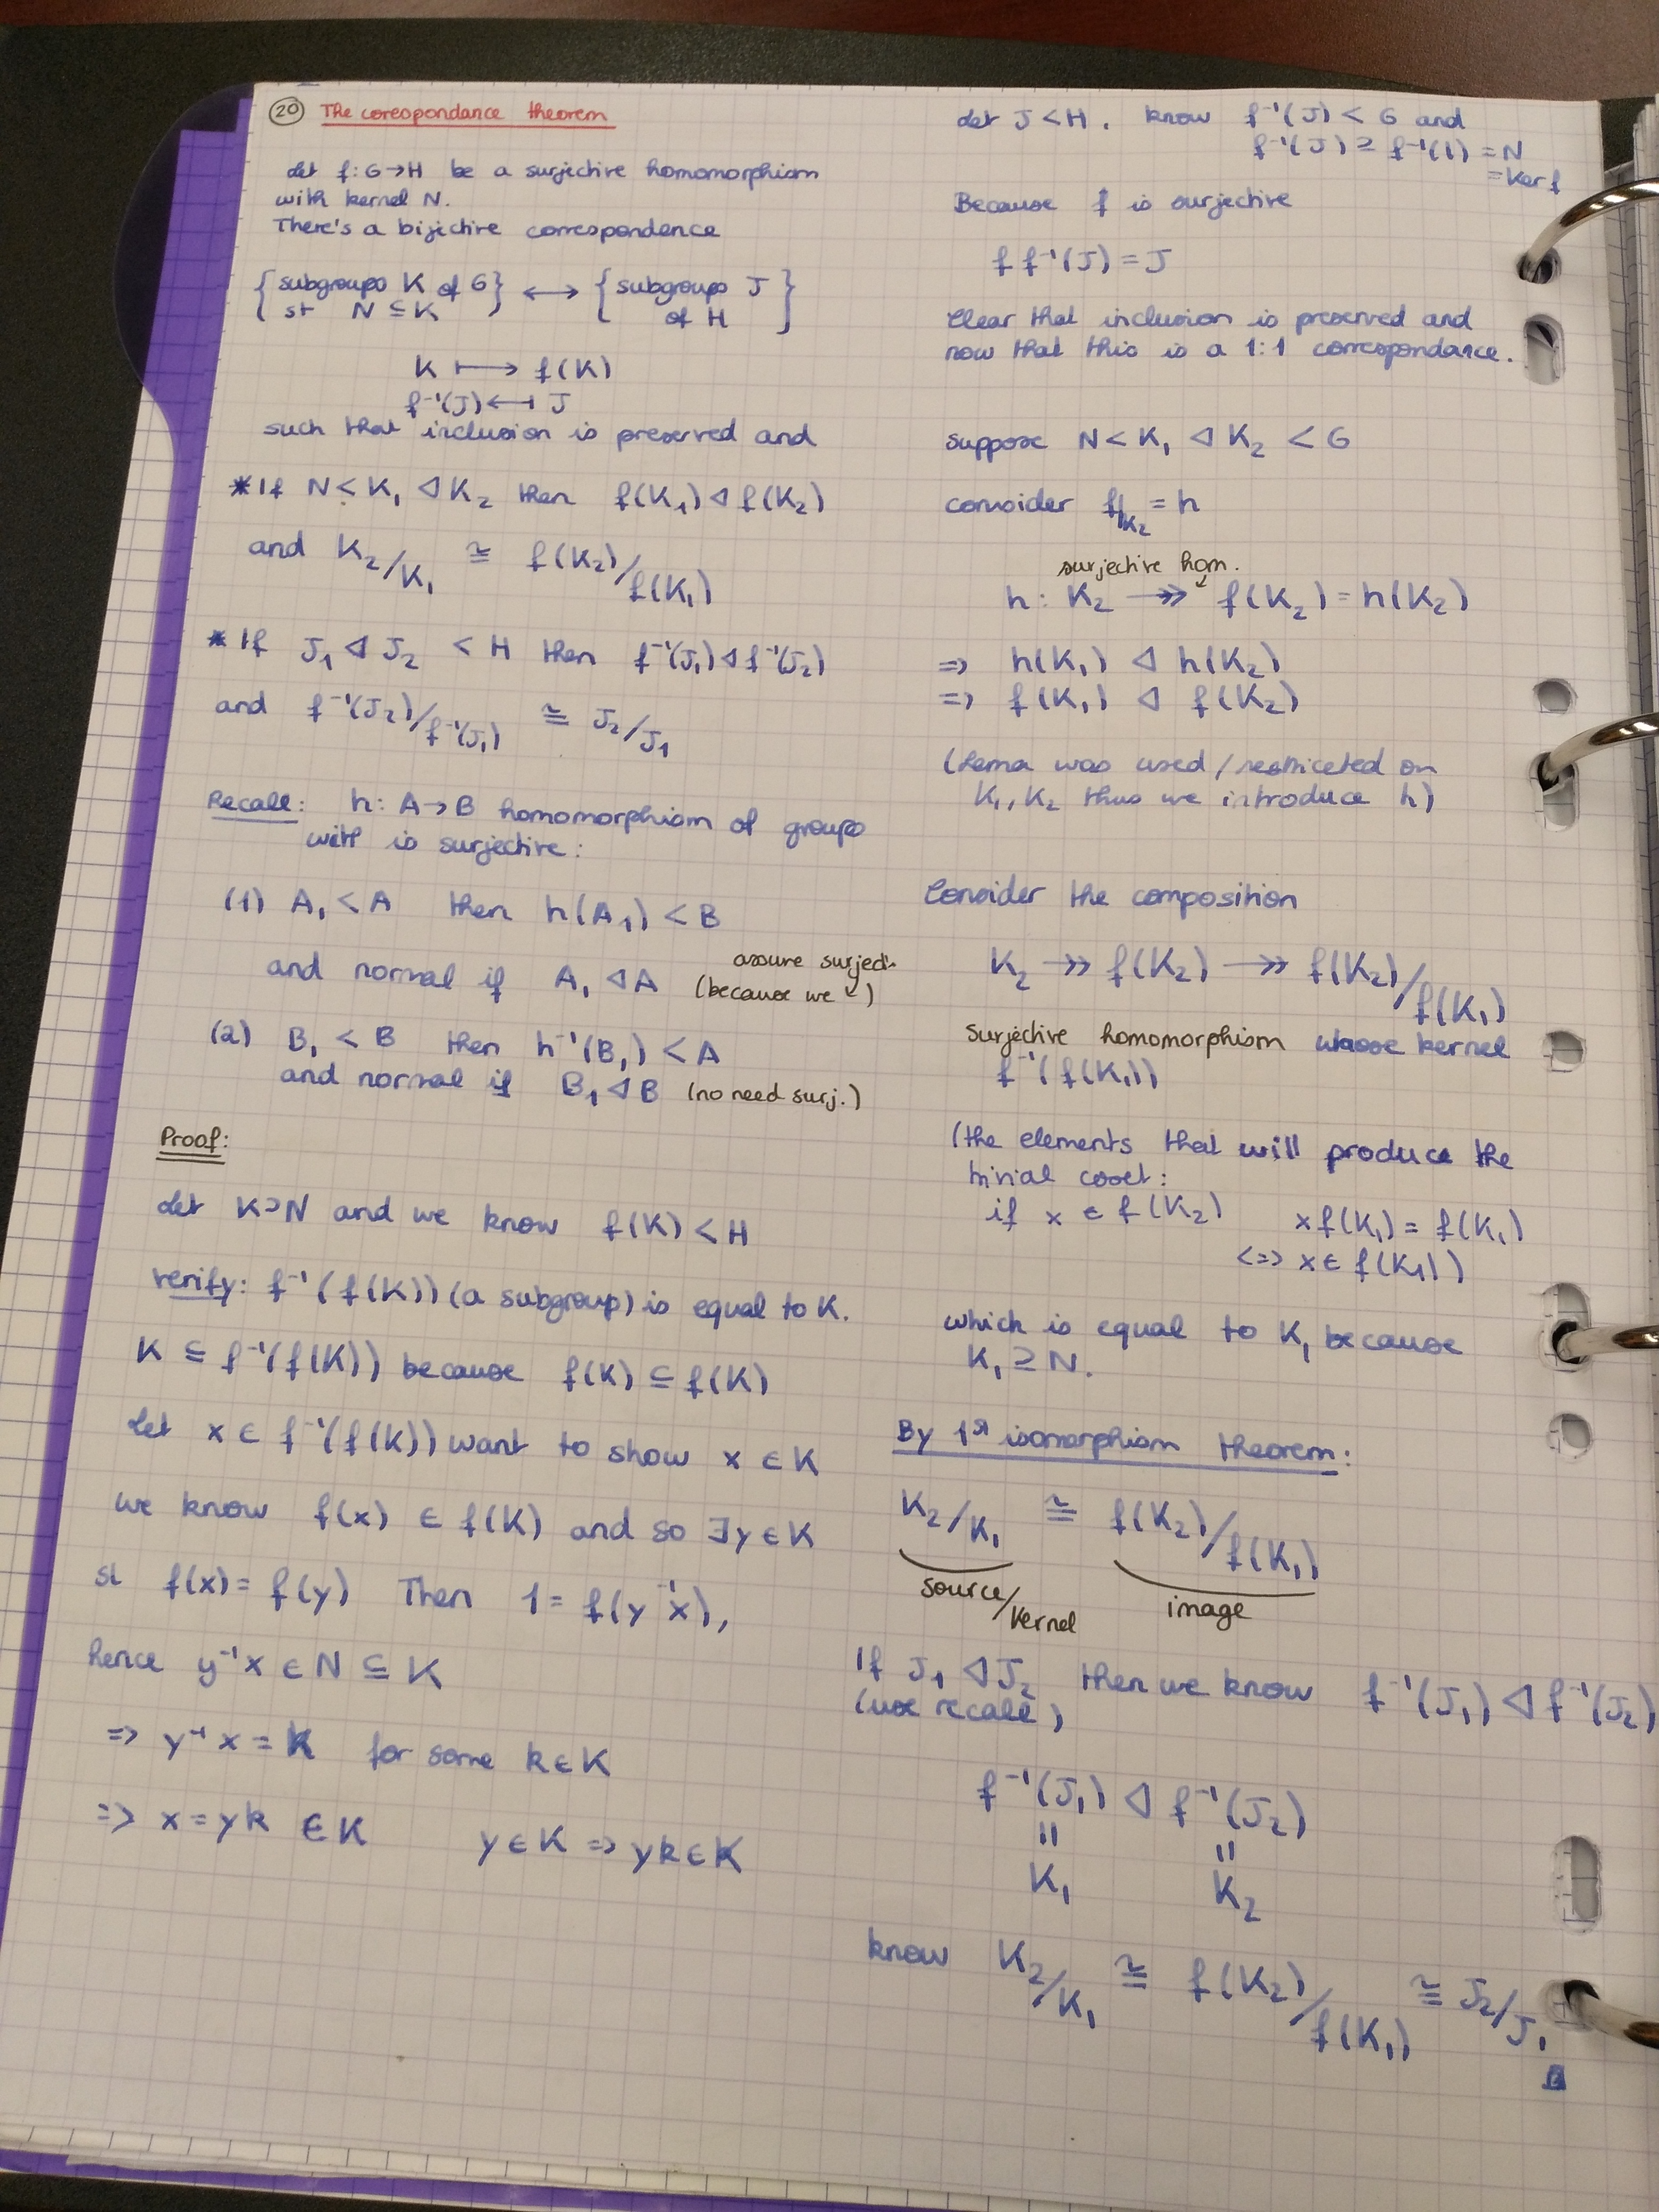 20 The corespondance theorem
Let f: G→H be a surjective homomorphism
with kernel N.
There's a bijective correspondence
{ subgroups K of G st N ⊆ K } ↔ { subgroups J of H }
K ⟼ f(K)
f⁻¹(J) ⟻ J
such that inclusion is preserved and
* If N < K₁ ◁ K₂ then f(K₁) ◁ f(K₂)
and K₂/K₁ ≅ f(K₂)/f(K₁)
* If J₁ ◁ J₂ < H then f⁻¹(J₁) ◁ f⁻¹(J₂)
and f⁻¹(J₂)/f⁻¹(J₁) ≅ J₂/J₁
Recall: h: A→B homomorphism of groups
is surjective:
(1) A₁ < A then h(A₁) < B
and normal if A₁ ◁ A (because we assure surject.)
(2) B₁ < B then h⁻¹(B₁) < A
and normal if B₁ ◁ B (no need surj.)
Proof:
Let K⊃N and we know f(K) < H
verify: f⁻¹(f(K)) (a subgroup) is equal to K.
K ⊆ f⁻¹(f(K)) because f(K) ⊆ f(K)
Let x ∈ f⁻¹(f(K)) want to show x ∈ K
we know f(x) ∈ f(K) and so ∃y ∈ K
st f(x) = f(y) Then 1 = f(y⁻¹x),
hence y⁻¹x ∈ N ⊆ K
=> y⁻¹x = k for some k ∈ K
=> x = yk ∈ K y ∈ K => yk ∈ K
Let J < H. know f⁻¹(J) < G and
f⁻¹(J) ⊇ f⁻¹(1) = N
= Ker f
Because f is surjective
f f⁻¹(J) = J
Clear that inclusion is preserved and
now that this is a 1:1 correspondance.
suppose N < K₁ ◁ K₂ < G
consider f|K₂ = h
surjective hom.
h: K₂ ↠ f(K₂) = h(K₂)
=> h(K₁) ◁ h(K₂)
=> f(K₁) ◁ f(K₂)
(Lema was used / restriceted on
K₁, K₂ thus we introduce h)
Consider the composition
K₂ ↠ f(K₂) ↠ f(K₂)/f(K₁)
Surjective homomorphism whose kernel
f⁻¹(f(K₁))
(the elements that will produce the
trivial coset:
if x ∈ f(K₂) xf(K₁) = f(K₁)
<=> x ∈ f(K₁))
which is equal to K₁ because
K₁ ⊇ N.
By 1st isomorphism theorem:
K₂/K₁ ≅ f(K₂)/f(K₁)
source/kernel image
If J₁ ◁ J₂ then we know f⁻¹(J₁) ◁ f⁻¹(J₂)
(use recall)
f⁻¹(J₁) ◁ f⁻¹(J₂)
= =
K₁ K₂
know K₂/K₁ ≅ f(K₂)/f(K₁) ≅ J₂/J₁